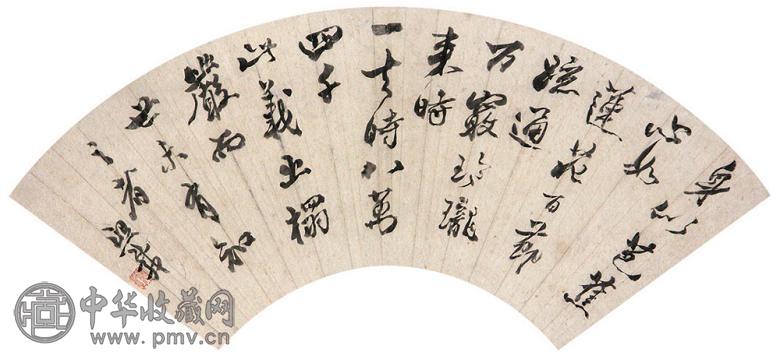 身似芭蕉
心如
蓮花百節
疏通
万竅玲瓏
来時
一去時八萬
四千
此義出楞
嚴而
世未有知
之者
中华收藏网
www.pmv.cn